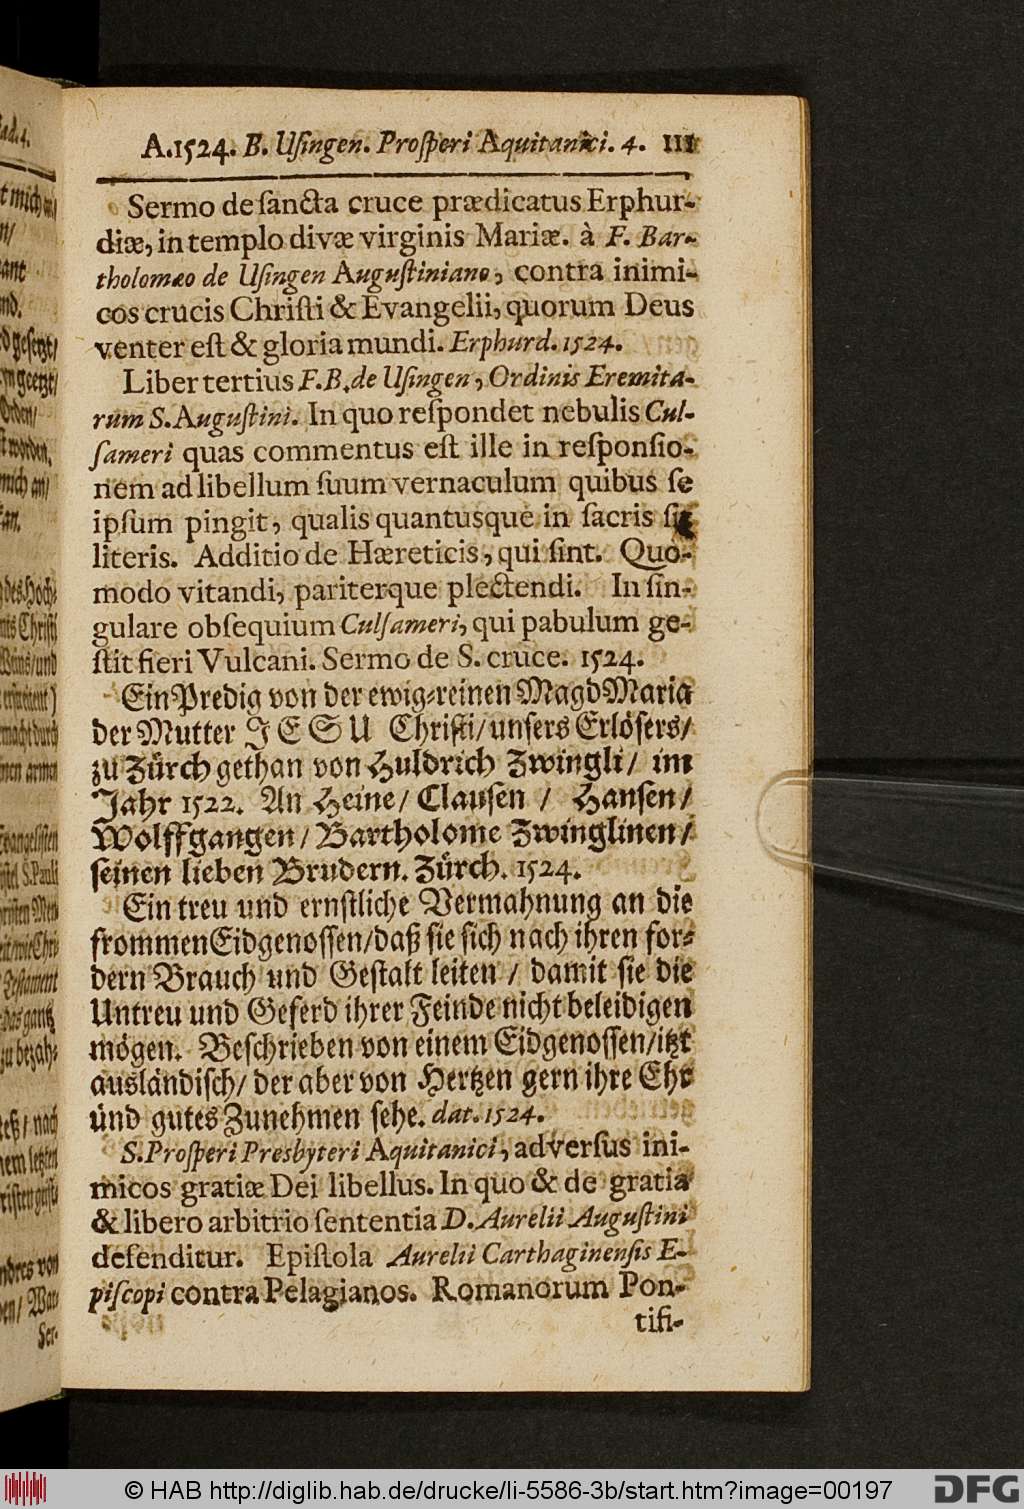 A.1524. B. Uſingen. Proſperi Aquitanici. 4. 111
Sermo de ſancta cruce prædicatus Erphur-
diæ, in templo divæ virginis Mariæ. à F. Bar-
tholomæo de Uſingen Auguſtiniano, contra inimi-
cos crucis Chriſti & Evangelii, quorum Deus
venter eſt & gloria mundi. Erphurd. 1524.
Liber tertius F. B. de Uſingen, Ordinis Eremita-
rum S. Auguſtini. In quo reſpondet nebulis Cul-
ſameri quas commentus eſt ille in reſponſio-
nem ad libellum ſuum vernaculum quibus ſe
ipſum pingit, qualis quantusque in ſacris ſit
literis. Additio de Hæreticis, qui ſint. Quo-
modo vitandi, pariterque plectendi. In ſin-
gulare obſequium Culſameri, qui pabulum ge-
ſtit fieri Vulcani. Sermo de S. cruce. 1524.
Ein Predig von der ewig-reinen Magd Maria
der Mutter JESU Chriſti/ unſers Erlöſers/
zu Zürch gethan von Huldrich Zwingli/ im
Jahr 1522. An Heine/ Clauſen / Hanſen/
Wolffgangen/ Bartholome Zwinglinen/
ſeinen lieben Brudern. Zürch. 1524.
Ein treu und ernſtliche Vermahnung an die
frommen Eidgenoſſen/ daß ſie ſich nach ihren for-
dern Brauch und Geſtalt leiten / damit ſie die
Untreu und Geferd ihrer Feinde nicht beleidigen
mögen. Beſchrieben von einem Eidgenoſſen/ itzt
ausländiſch/ der aber von Hertzen gern ihre Ehr
ünd gutes Zunehmen ſehe. dat. 1524.
S. Proſperi Presbyteri Aquitanici, adverſus ini-
micos gratiæ Dei libellus. In quo & de gratia
& libero arbitrio ſententia D. Aurelii Auguſtini
defenditur. Epiſtola Aurelii Carthaginenſis E-
piſcopi contra Pelagianos. Romanorum Pon-
tifi-
© HAB http://diglib.hab.de/drucke/li-5586-3b/start.htm?image=00197
DFG